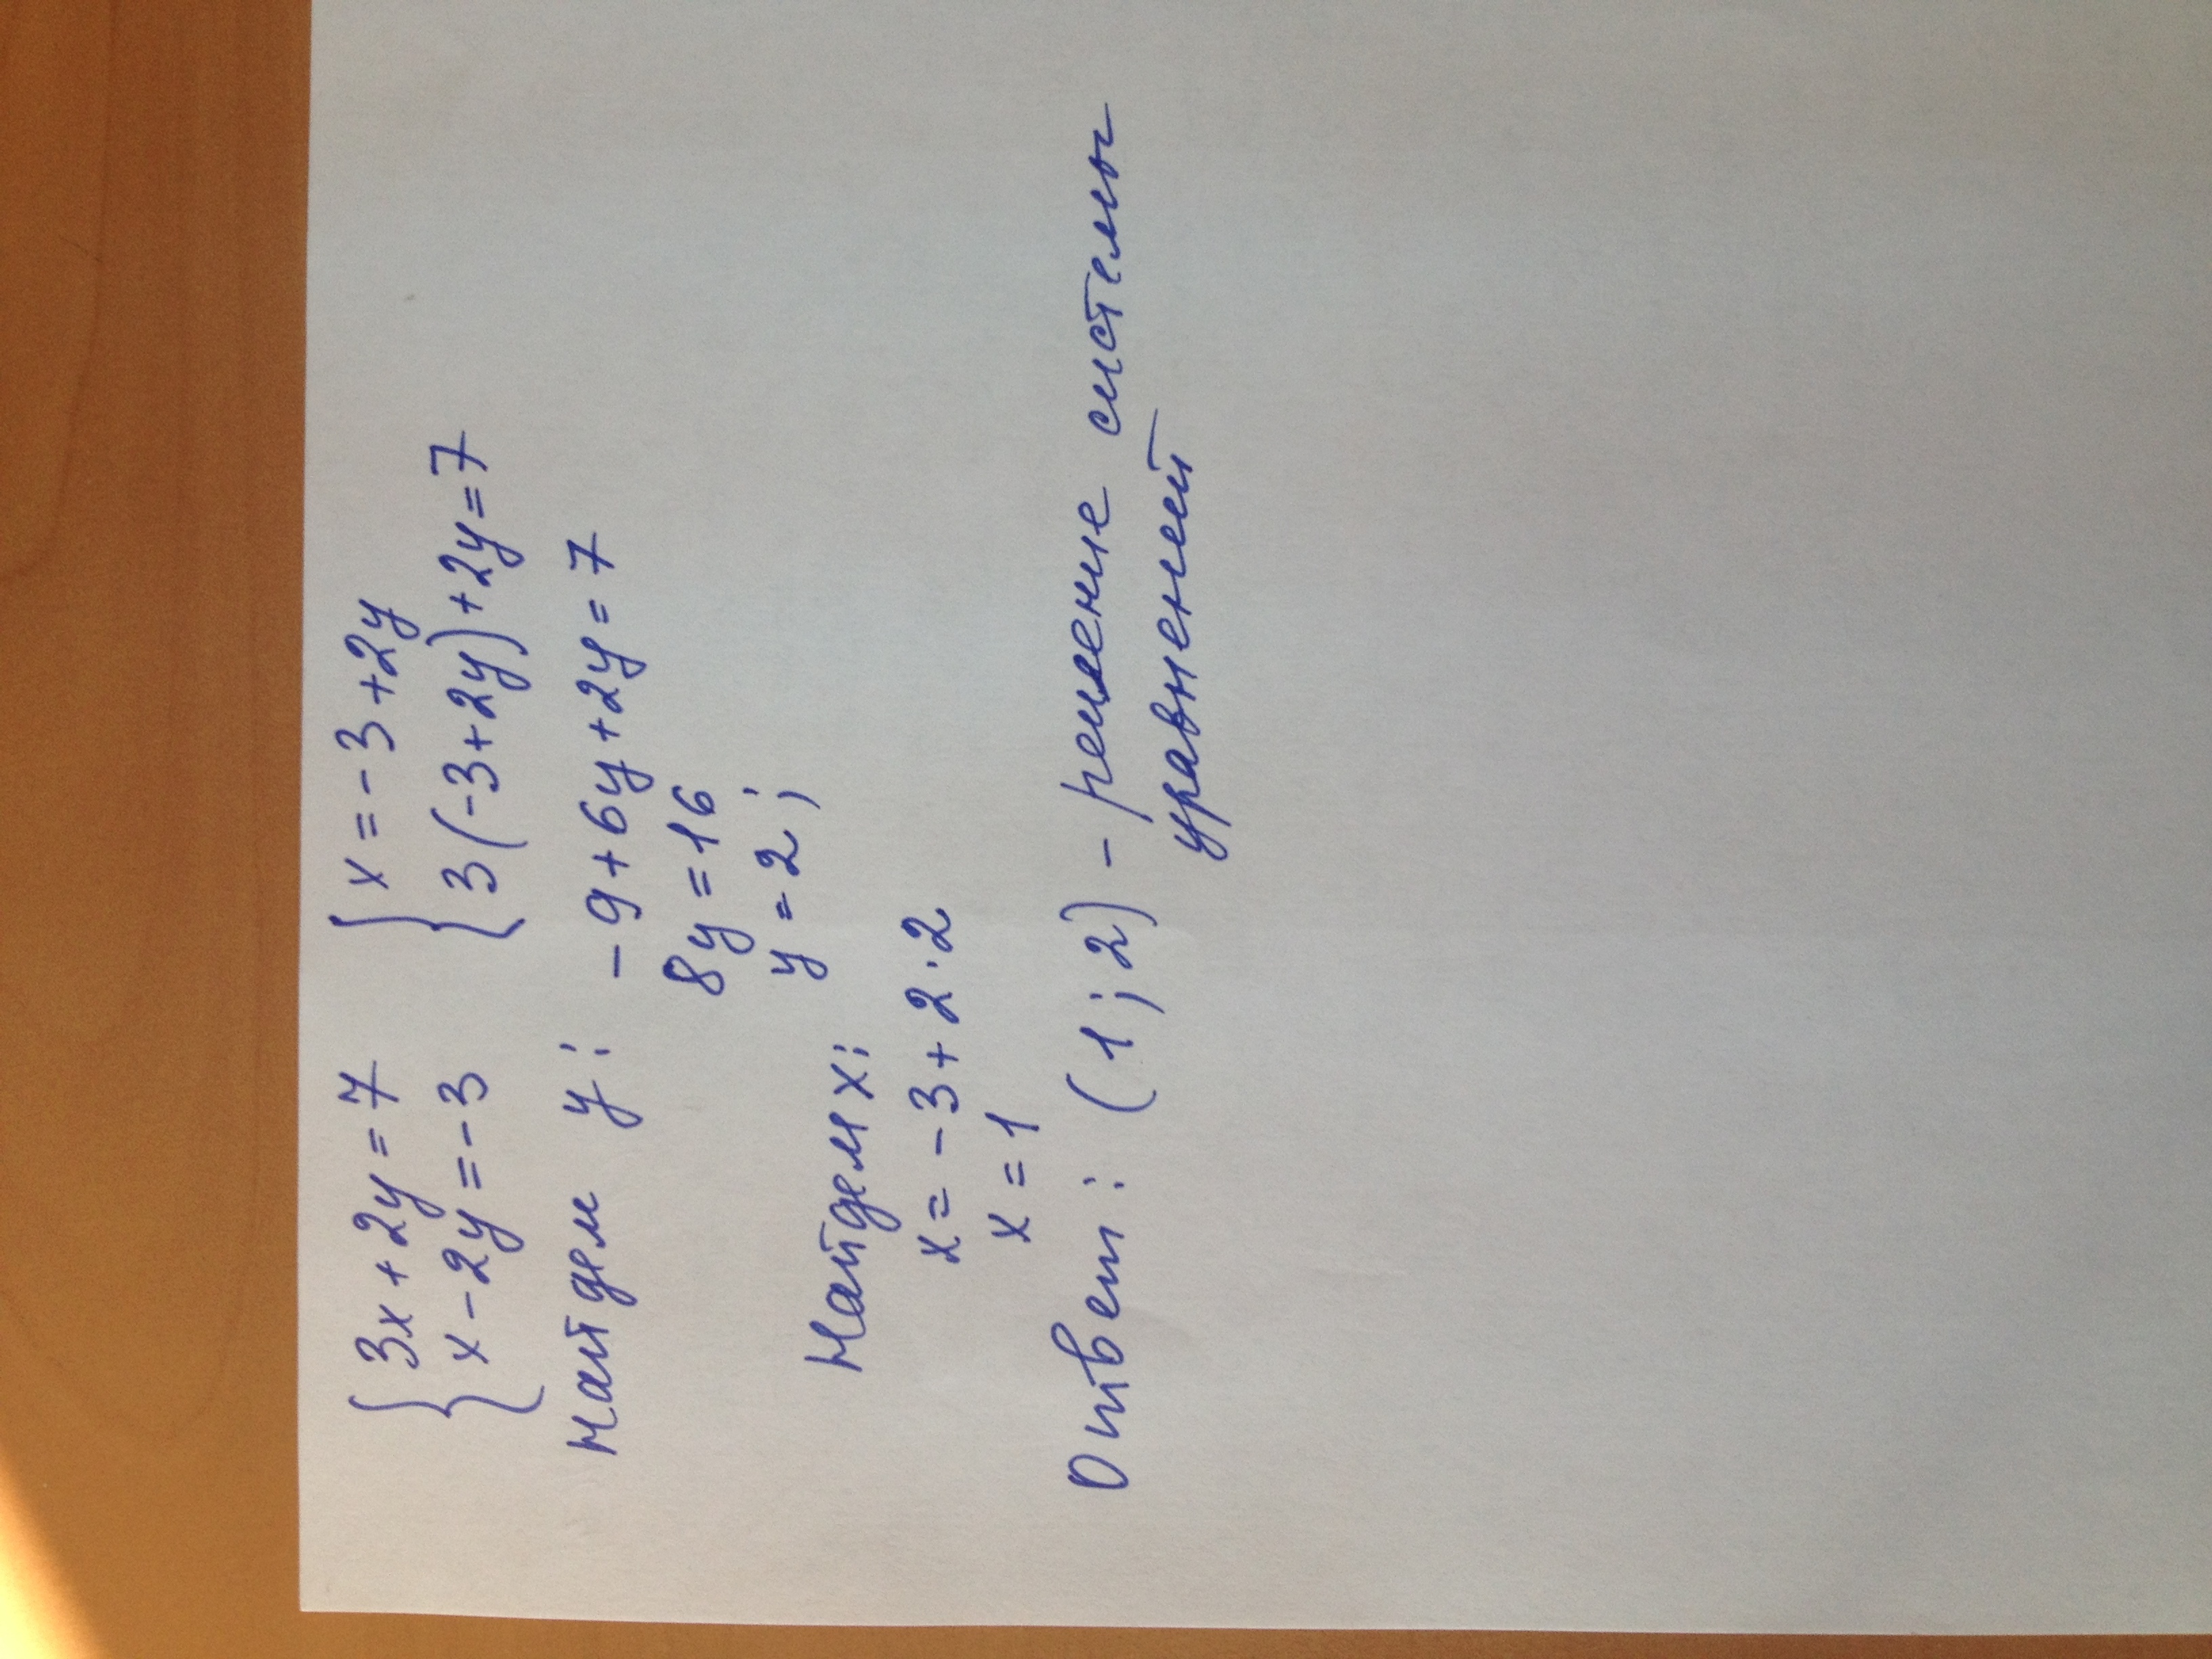 { 3x + 2y = 7 { x = -3 + 2y
{ x - 2y = -3 { 3(-3+2y)+2y=7
Найдем y: -9+6y+2y=7
8y = 16
y = 2;
Найдем x:
x = -3 + 2·2
x = 1
Ответ: (1; 2) - решение системы
уравнений